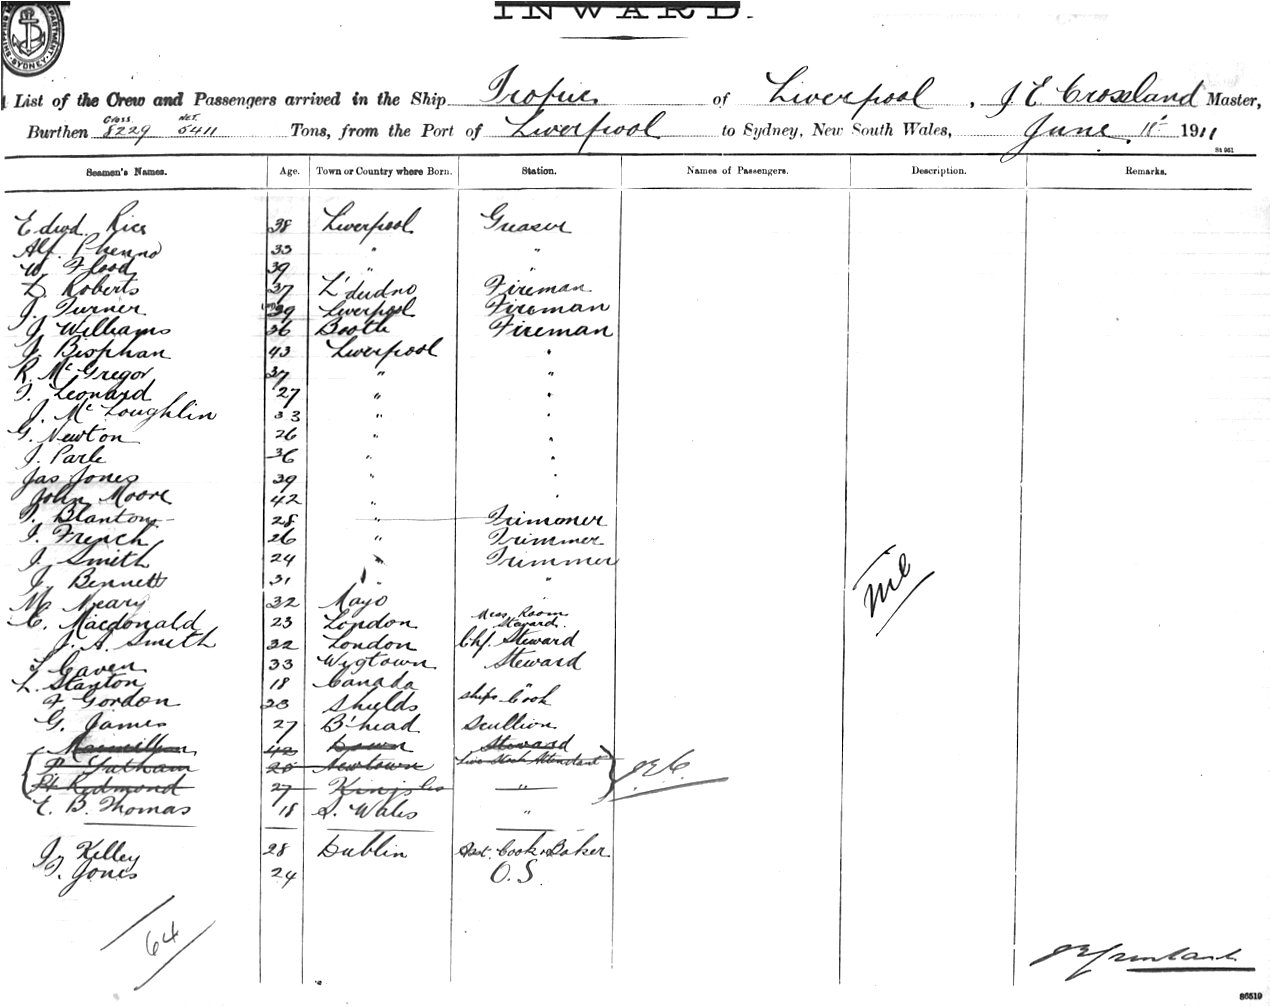 SHIPPING M DEPARTMENT SYDNEY
INWARD.
List of the Crew and Passengers arrived in the Ship Tropic of Liverpool, J E Crossland Master,
Burthen Gross 8229 Net 5411 Tons, from the Port of Liverpool to Sydney, New South Wales, June 11 1911
St 961
Seamen's Names. Age. Town or Country where Born. Station. Names of Passengers. Description. Remarks.
Edwd. Rice 38 Liverpool Greaser
Alf. Phenno 33 " "
W. Flood 39 " "
D. Roberts 37 L'dudno Fireman
J. Turner 39 Liverpool Fireman
J. Williams 36 Bootle Fireman
J. Bisphan 43 Liverpool "
R. McGregor 37 " "
T. Leonard 27 " "
J. McLoughlin 33 " "
G. Newton 26 " "
J. Parle 36 " "
Jas Jones 39 " "
John Moore 42 " "
T. Blanton 28 " Trimmer
J. French 26 " Trimmer
J. Smith 24 " Trimmer
J. Bennett 31 " "
M. Neary 32 Mayo "
C. Macdonald 23 London Mess Room Steward.
J. A. Smith 32 London Chf. Steward
Caven 33 Wigtown Steward
L. Stanton 18 Canada "
F Gordon 23 Shields Ships Cook
G. James 27 B'head Scullion
42 Down Steward
P Latham 20 Newtown Live Stock Attendant J.E.C.
Redmond 27 "
E. B. Thomas 18 S. Wales "
J. Kelley 28 Dublin Asst. Cook & Baker
T. Jones 24 O.S.
Nil
64
86519